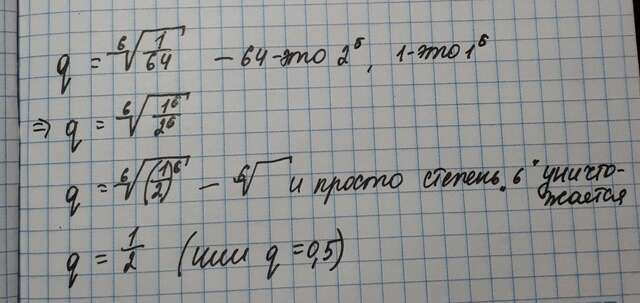 q = ⁶√(1/64) - 64-это 2⁶, 1-это 1⁶
⇒ q = ⁶√(1⁶/2⁶)
q = ⁶√((1/2)⁶) - ⁶√ и просто степень "6" уничто-
жается
q = 1/2 (или q = 0,5)